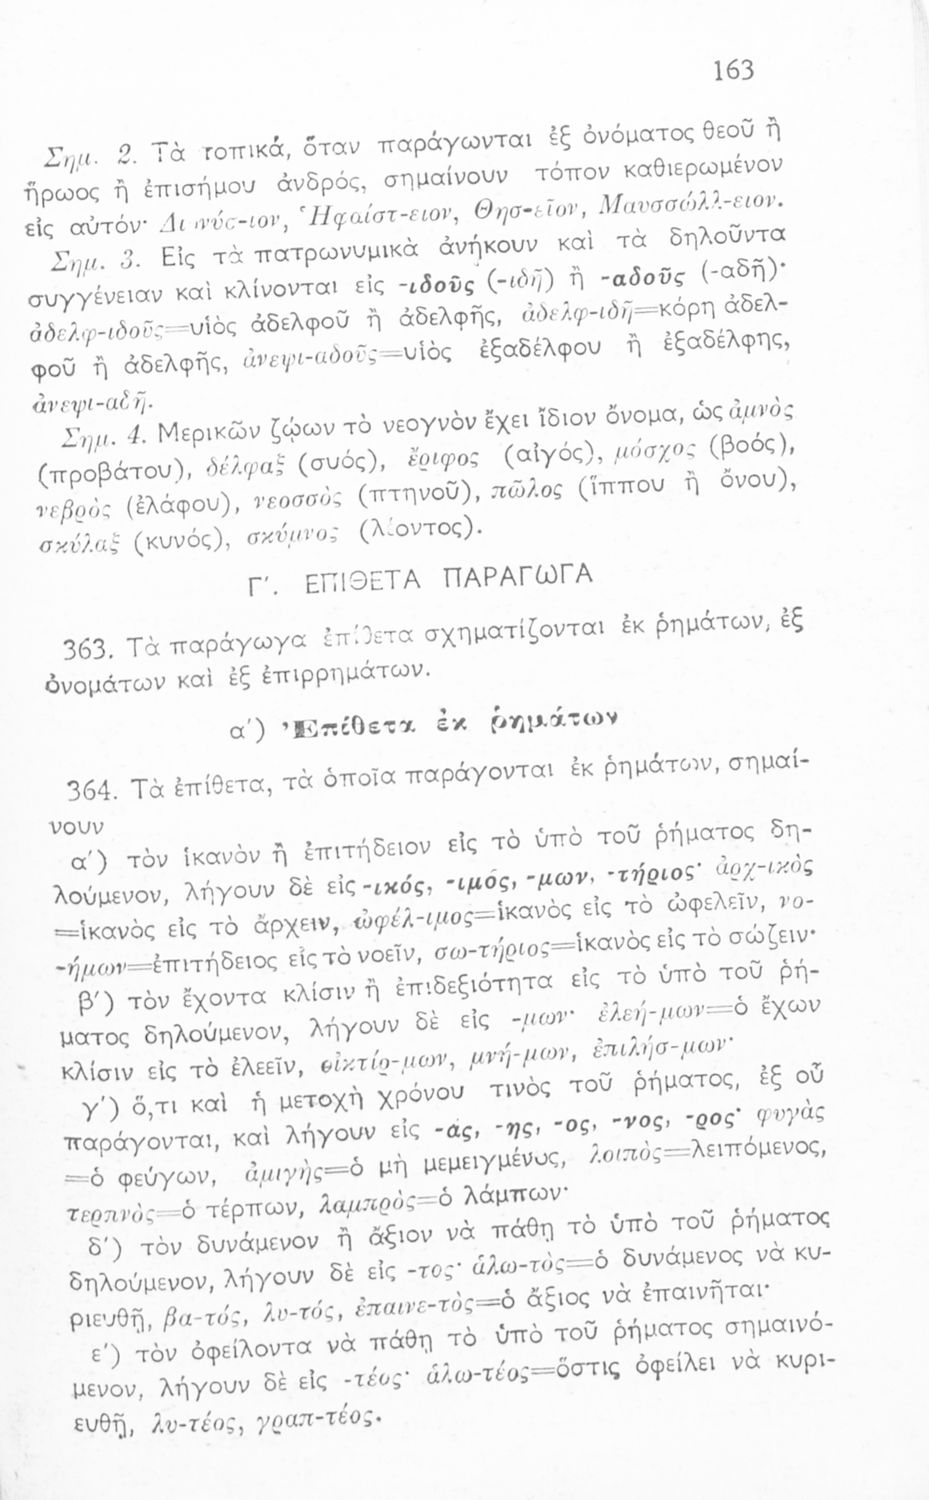 163
Σημ. 2. Τὰ τοπικά, ὅταν παράγωνται ἐξ ὀνόματος θεοῦ ἢ
ἥρωος ἢ ἐπισήμου ἀνδρός, σημαίνουν τόπον καθιερωμένον
εἰς αὐτόν· Διονύσ-ιον, Ἡφαίστ-ειον, Θησ-εῖον, Μαυσσώλλ-ειον.
Σημ. 3. Εἰς τὰ πατρωνυμικὰ ἀνήκουν καὶ τὰ δηλοῦντα
συγγένειαν καὶ κλίνονται εἰς -ιδοῦς (-ιδῆ) ἢ -αδοῦς (-αδῆ)·
ἀδελφ-ιδοῦς=υἱὸς ἀδελφοῦ ἢ ἀδελφῆς, ἀδελφ-ιδῆ=κόρη ἀδελ-
φοῦ ἢ ἀδελφῆς, ἀνεψι-αδοῦς=υἱὸς ἐξαδέλφου ἢ ἐξαδέλφης,
ἀνεψι-αδῆ.
Σημ. 4. Μερικῶν ζῴων τὸ νεογνὸν ἔχει ἴδιον ὄνομα, ὡς ἀμνὸς
(προβάτου), δέλφαξ (συός), ἔριφος (αἰγός), μόσχος (βοός),
νεβρὸς (ἐλάφου), νεοσσὸς (πτηνοῦ), πῶλος (ἵππου ἢ ὄνου),
σκύλαξ (κυνός), σκύμνος (λέοντος).
Γ΄. ΕΠΙΘΕΤΑ ΠΑΡΑΓΩΓΑ
363. Τὰ παράγωγα ἐπίθετα σχηματίζονται ἐκ ῥημάτων, ἐξ
ὀνομάτων καὶ ἐξ ἐπιρρημάτων.
α΄) Ἐπίθετα ἐκ ῥημάτων
364. Τὰ ἐπίθετα, τὰ ὁποῖα παράγονται ἐκ ῥημάτων, σημαί-
νουν
α΄) τὸν ἱκανὸν ἢ ἐπιτήδειον εἰς τὸ ὑπὸ τοῦ ῥήματος δη-
λούμενον, λήγουν δὲ εἰς -ικός, -ιμος, -μων, -τήριος· ἀρχ-ικὸς
=ἱκανὸς εἰς τὸ ἄρχειν, ὠφέλ-ιμος=ἱκανὸς εἰς τὸ ὠφελεῖν, νο-
-ήμων=ἐπιτήδειος εἰς τὸ νοεῖν, σω-τήριος=ἱκανὸς εἰς τὸ σώζειν·
β΄) τὸν ἔχοντα κλίσιν ἢ ἐπιδεξιότητα εἰς τὸ ὑπὸ τοῦ ῥή-
ματος δηλούμενον, λήγουν δὲ εἰς -μων· ἐλεή-μων=ὁ ἔχων
κλίσιν εἰς τὸ ἐλεεῖν, οἰκτίρ-μων, μνή-μων, ἐπιλήσ-μων·
γ΄) ὅ,τι καὶ ἡ μετοχὴ χρόνου τινὸς τοῦ ῥήματος, ἐξ οὗ
παράγονται, καὶ λήγουν εἰς -άς, -ης, -ος, -νος, -ρος· φυγὰς
=ὁ φεύγων, ἀμιγὴς=ὁ μὴ μεμειγμένος, λοιπὸς=λειπόμενος,
τερπνὸς=ὁ τέρπων, λαμπρὸς=ὁ λάμπων·
δ΄) τὸν δυνάμενον ἢ ἄξιον νὰ πάθῃ τὸ ὑπὸ τοῦ ῥήματος
δηλούμενον, λήγουν δὲ εἰς -τος· ἁλω-τὸς=ὁ δυνάμενος νὰ κυ-
ριευθῇ, βα-τός, λυ-τός, ἐπαινε-τὸς=ὁ ἄξιος νὰ ἐπαινῆται·
ε΄) τὸν ὀφείλοντα νὰ πάθῃ τὸ ὑπὸ τοῦ ῥήματος σημαινό-
μενον, λήγουν δὲ εἰς -τέος· ἁλω-τέος=ὅστις ὀφείλει νὰ κυρι-
ευθῇ, λυ-τέος, γραπ-τέος.